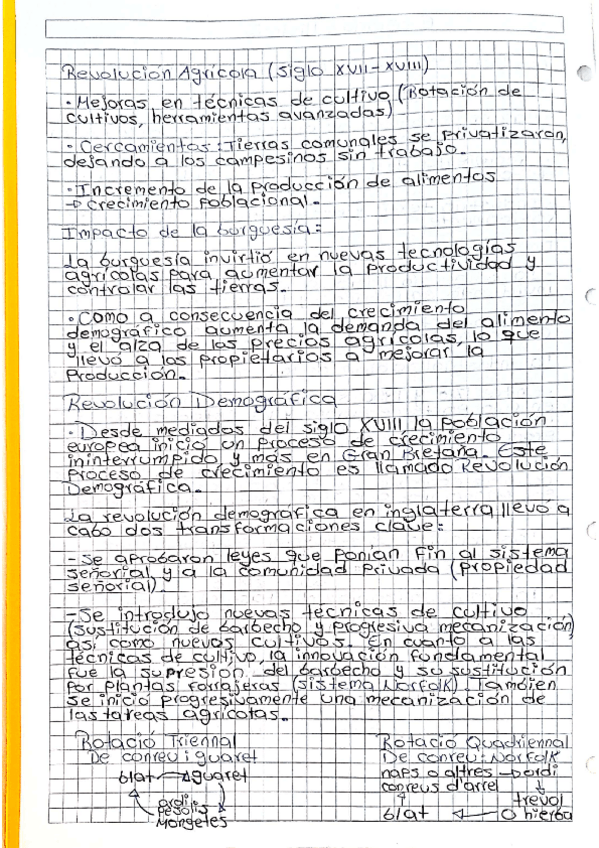 Revolución Agrícola (siglo XVII-XVIII)
· Mejoras en técnicas de cultivo (Rotación de
cultivos, herramientas avanzadas)
· Cercamientos: Tierras comunales se privatizaron,
dejando a los campesinos sin trabajo.
· Incremento de la producción de alimentos
→ crecimiento poblacional.
Impacto de la burguesía:
La burguesía invirtió en nuevas tecnologías
agrícolas para aumentar la productividad y
controlar las tierras.
· Como a consecuencia del crecimiento
demográfico aumenta la demanda del alimento
y el alza de los precios agrícolas, lo que
llevó a los propietarios a mejorar la
Producción.
Revolución Demográfica
· Desde mediados del siglo XVIII la población
europea inició un proceso de crecimiento
ininterrumpido y más en Gran Bretaña. Este
Proceso de crecimiento es llamado Revolución
Demográfica.
La revolución demográfica en inglaterra llevó a
cabo dos transformaciones clave:
- Se aprobaron leyes que ponían fin al sistema
señorial y a la comunidad Privada (propiedad
señorial).
- Se introdujo nuevas técnicas de cultivo
(sustitución de barbecho y progresiva mecanización)
así como nuevos cultivos. En cuanto a las
técnicas de cultivo, la innovación fundamental
fue la supresión del barbecho y su sustitución
por plantas forrajeras (sistema Norfolk). También
se inició progresivamente una mecanización de
las tareas agrícolas.
Rotació Triennal
De conreu i guaret
blat → guaret
ordi,
Pesolis
Mongetes
Rotació Quadriennal
De conreu: Norfolk
naps o altres → ordi
conreus d'arrel
trevol
blat ← o hierba